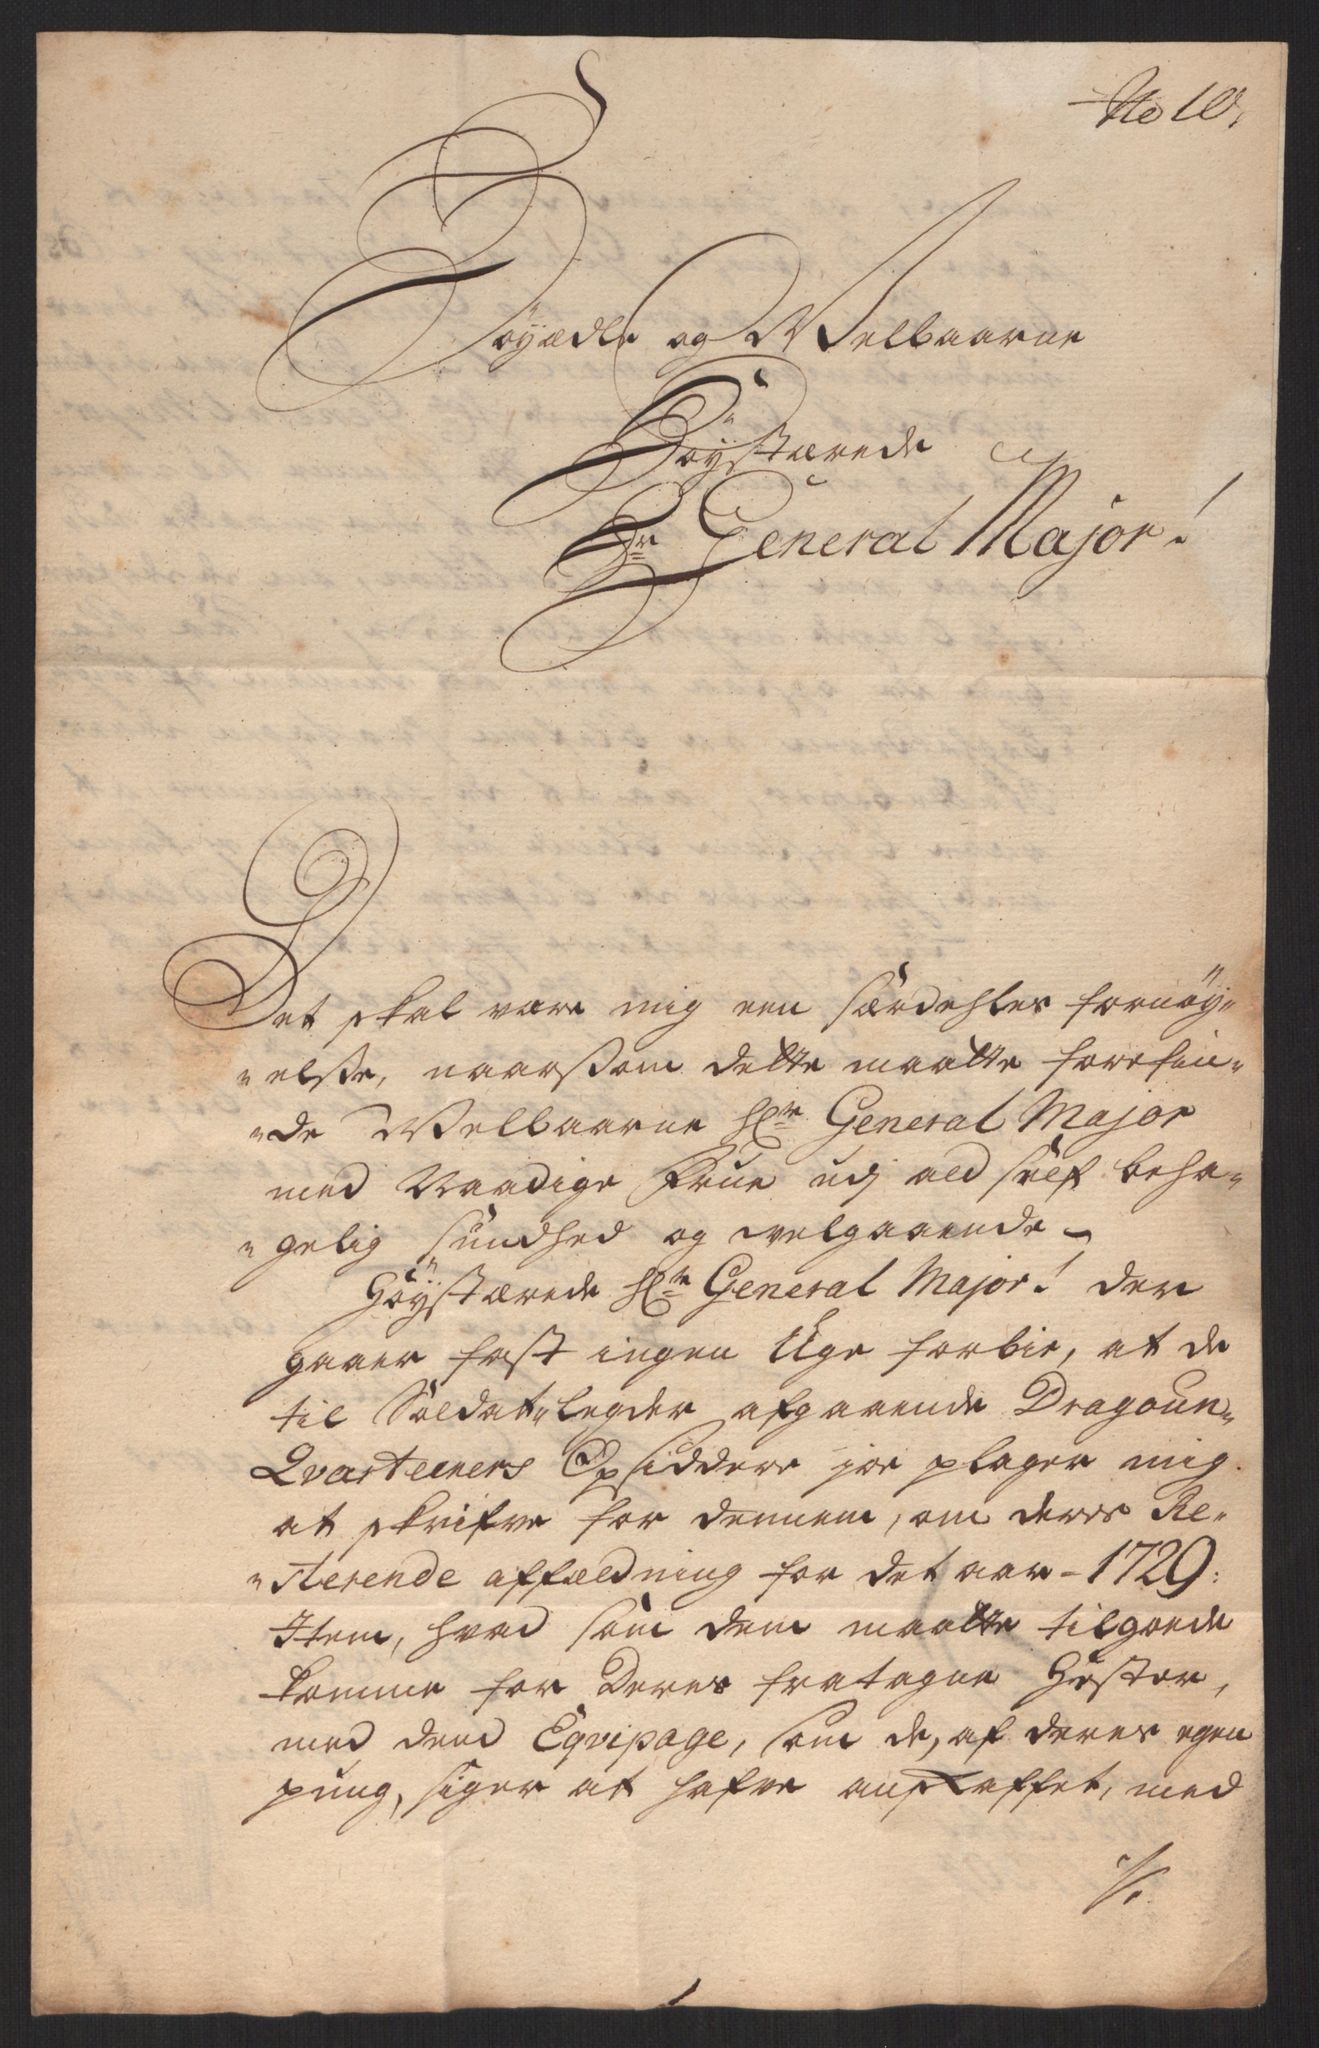 No 10.
Høyædle og Welbaarne
Høystærede
Hr General Major!
Det skal være mig een særdehles fornøy-
-elsse, naarssom dette maatte forefin-
-de Welbaarne Hr General Major
med Naadige Frue udj ald sælf beha-
-gelig sundhed og velgaaende.
Høystærede Hr General Major! der
gaaer fast ingen Uge forbie, at de
til Soldat-Legder afgaaende Dragoun-
Qvarteerers Opsiddere joe plager mig
at skrifve for dennem, om deres Re-
-sterende affældning for det aar 1729:
Item, hvad som dem maatte tilgoede
komme for Deres fratagne Hester,
med dend Eqvipage, som de, af deres egen
pung, siger at hafve anskaffet, med
./.